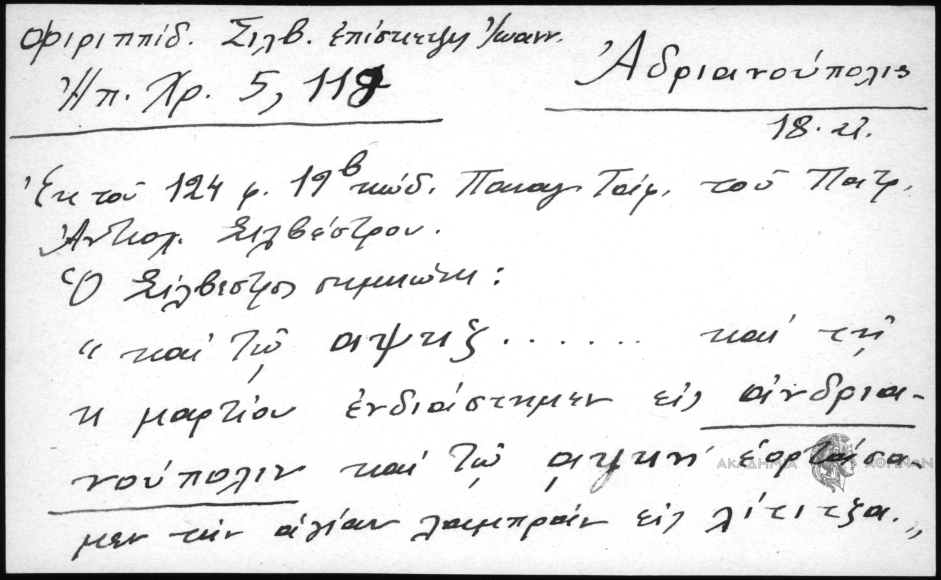 Φιλιππίδ. Σιλβ. ἐπίσκεψις Ἰωαν.
Ἠπ. Χρ. 5, 118
Ἀδριανούπολις
18. αἰ.
Ἐκ τοῦ 124 φ. 19β κώδ. Παναγ. Τάφ. τοῦ Πατρ.
Ἀντιοχ. Σιλβέστρου.
Ὁ Σίλβεστρος σημειώνει:
"καὶ τῷ αψκξ ....... καὶ τῇ
η μαρτίου ἐνδιάστημεν εἰς ἀνδρια-
νούπολιν καὶ τῷ αψκη ἑορτάσα-
μεν τὴν ἁγίαν λαμπρὰν εἰς λίτιτζα."
ΑΚΑΔΗΜΙΑ ΑΘΗΝΩΝ